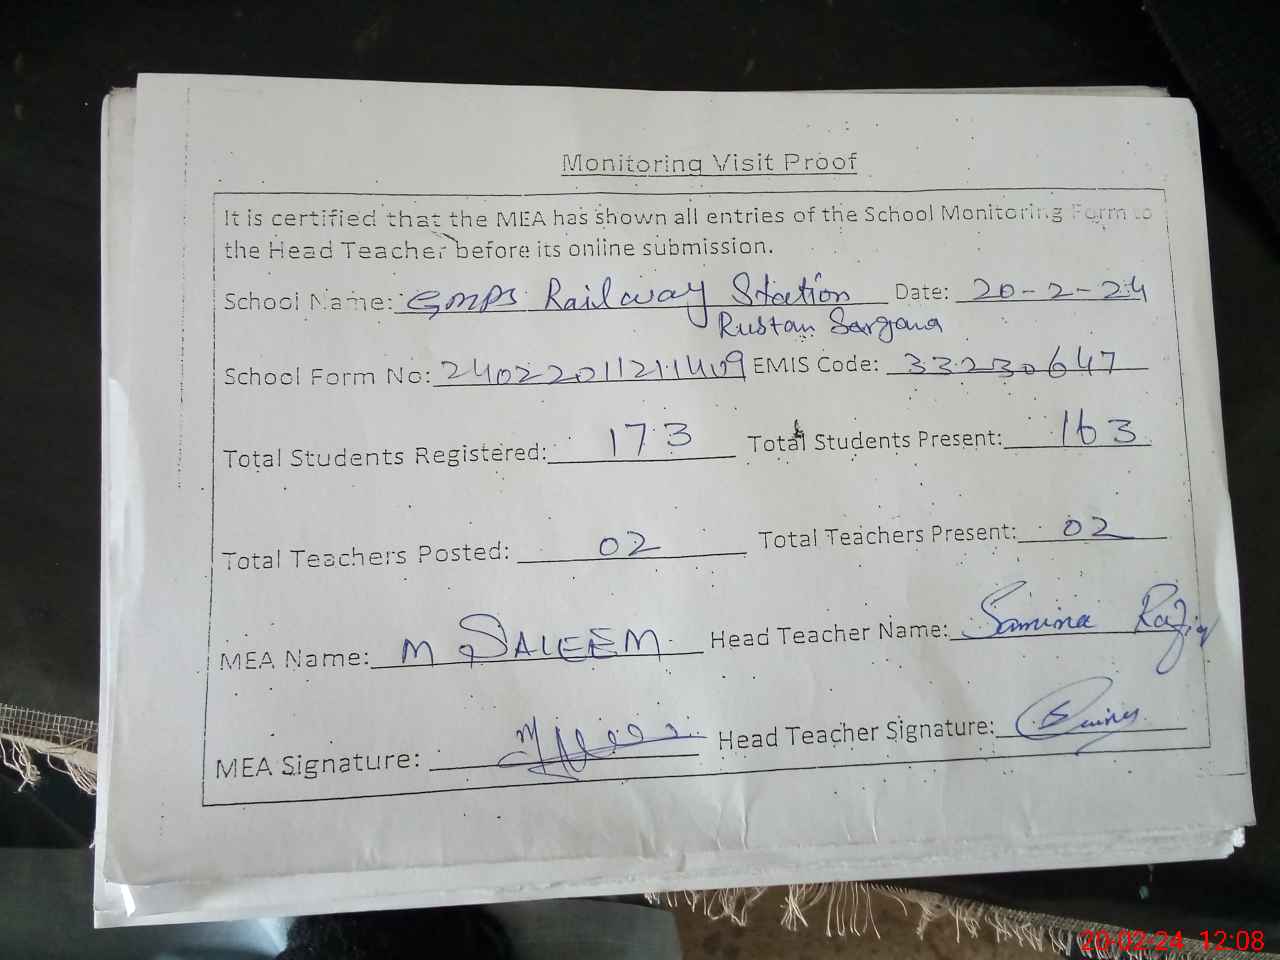 Monitoring Visit Proof
It is certified that the MEA has shown all entries of the School Monitoring Form to
the Head Teacher before its online submission.
School Name: GMPS Railway Station Date: 20-2-24
Rustan Sargana
School Form No: 24022011211409 EMIS Code: 33230647
Total Students Registered: 173 Total Students Present: 163
Total Teachers Posted: 02 Total Teachers Present: 02
MEA Name: M SALEEM Head Teacher Name: Samina Razia
MEA Signature: Head Teacher Signature:
20-02-24 12:08